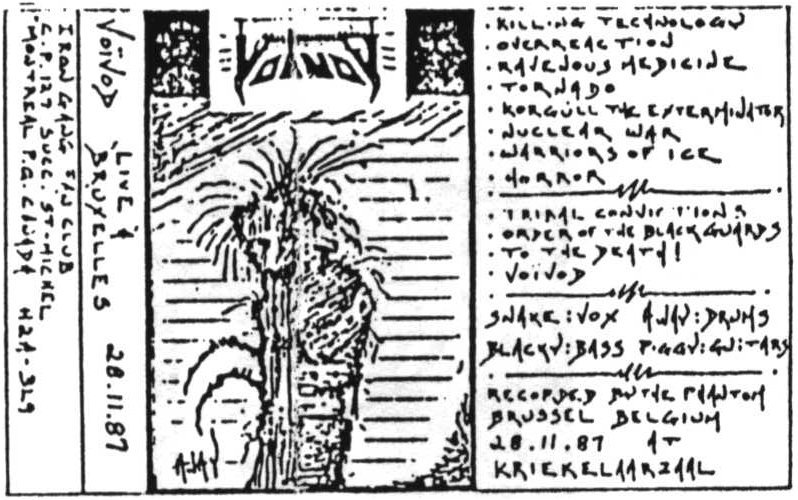 "IRON GANG FAN CLUB
C.P. 127 SUCC. ST-MICHEL
MONTREAL P.Q. CANADA H2A-3L9
VOÏVOD LIVE À BRUXELLES 28.11.87
VOIVOD
AWAY
· KILLING TECHNOLOGY
· OVERREACTION
· RAVENOUS MEDICINE
· TORNADO
· KORGÜLL THE EXTERMINATOR
· NUCLEAR WAR
· WARRIORS OF ICE
· HORROR
· TRIBAL CONVICTIONS
· ORDER OF THE BLACKGUARDS
· TO THE DEATH!
· VOÏVOD
SNAKE:VOX AWAY:DRUMS
BLACKY:BASS PIGGY:GUITARS
RECORDED BY THE PHANTOM
BRUSSEL BELGIUM
28.11.87 AT
KRIEKELAARZAAL